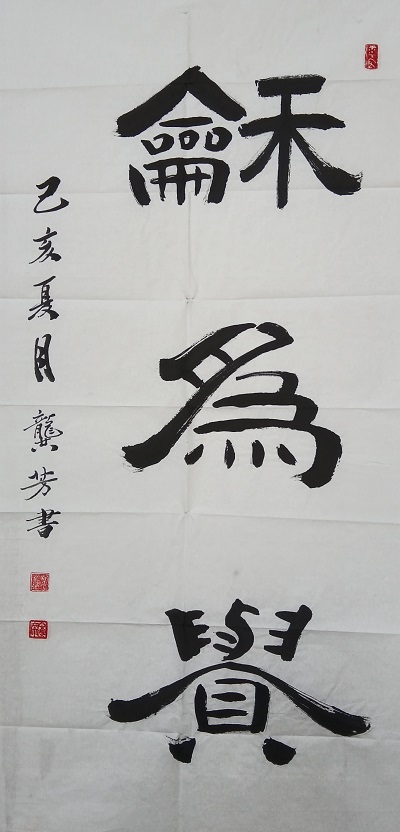 龢為貴
己亥夏月龔芳書